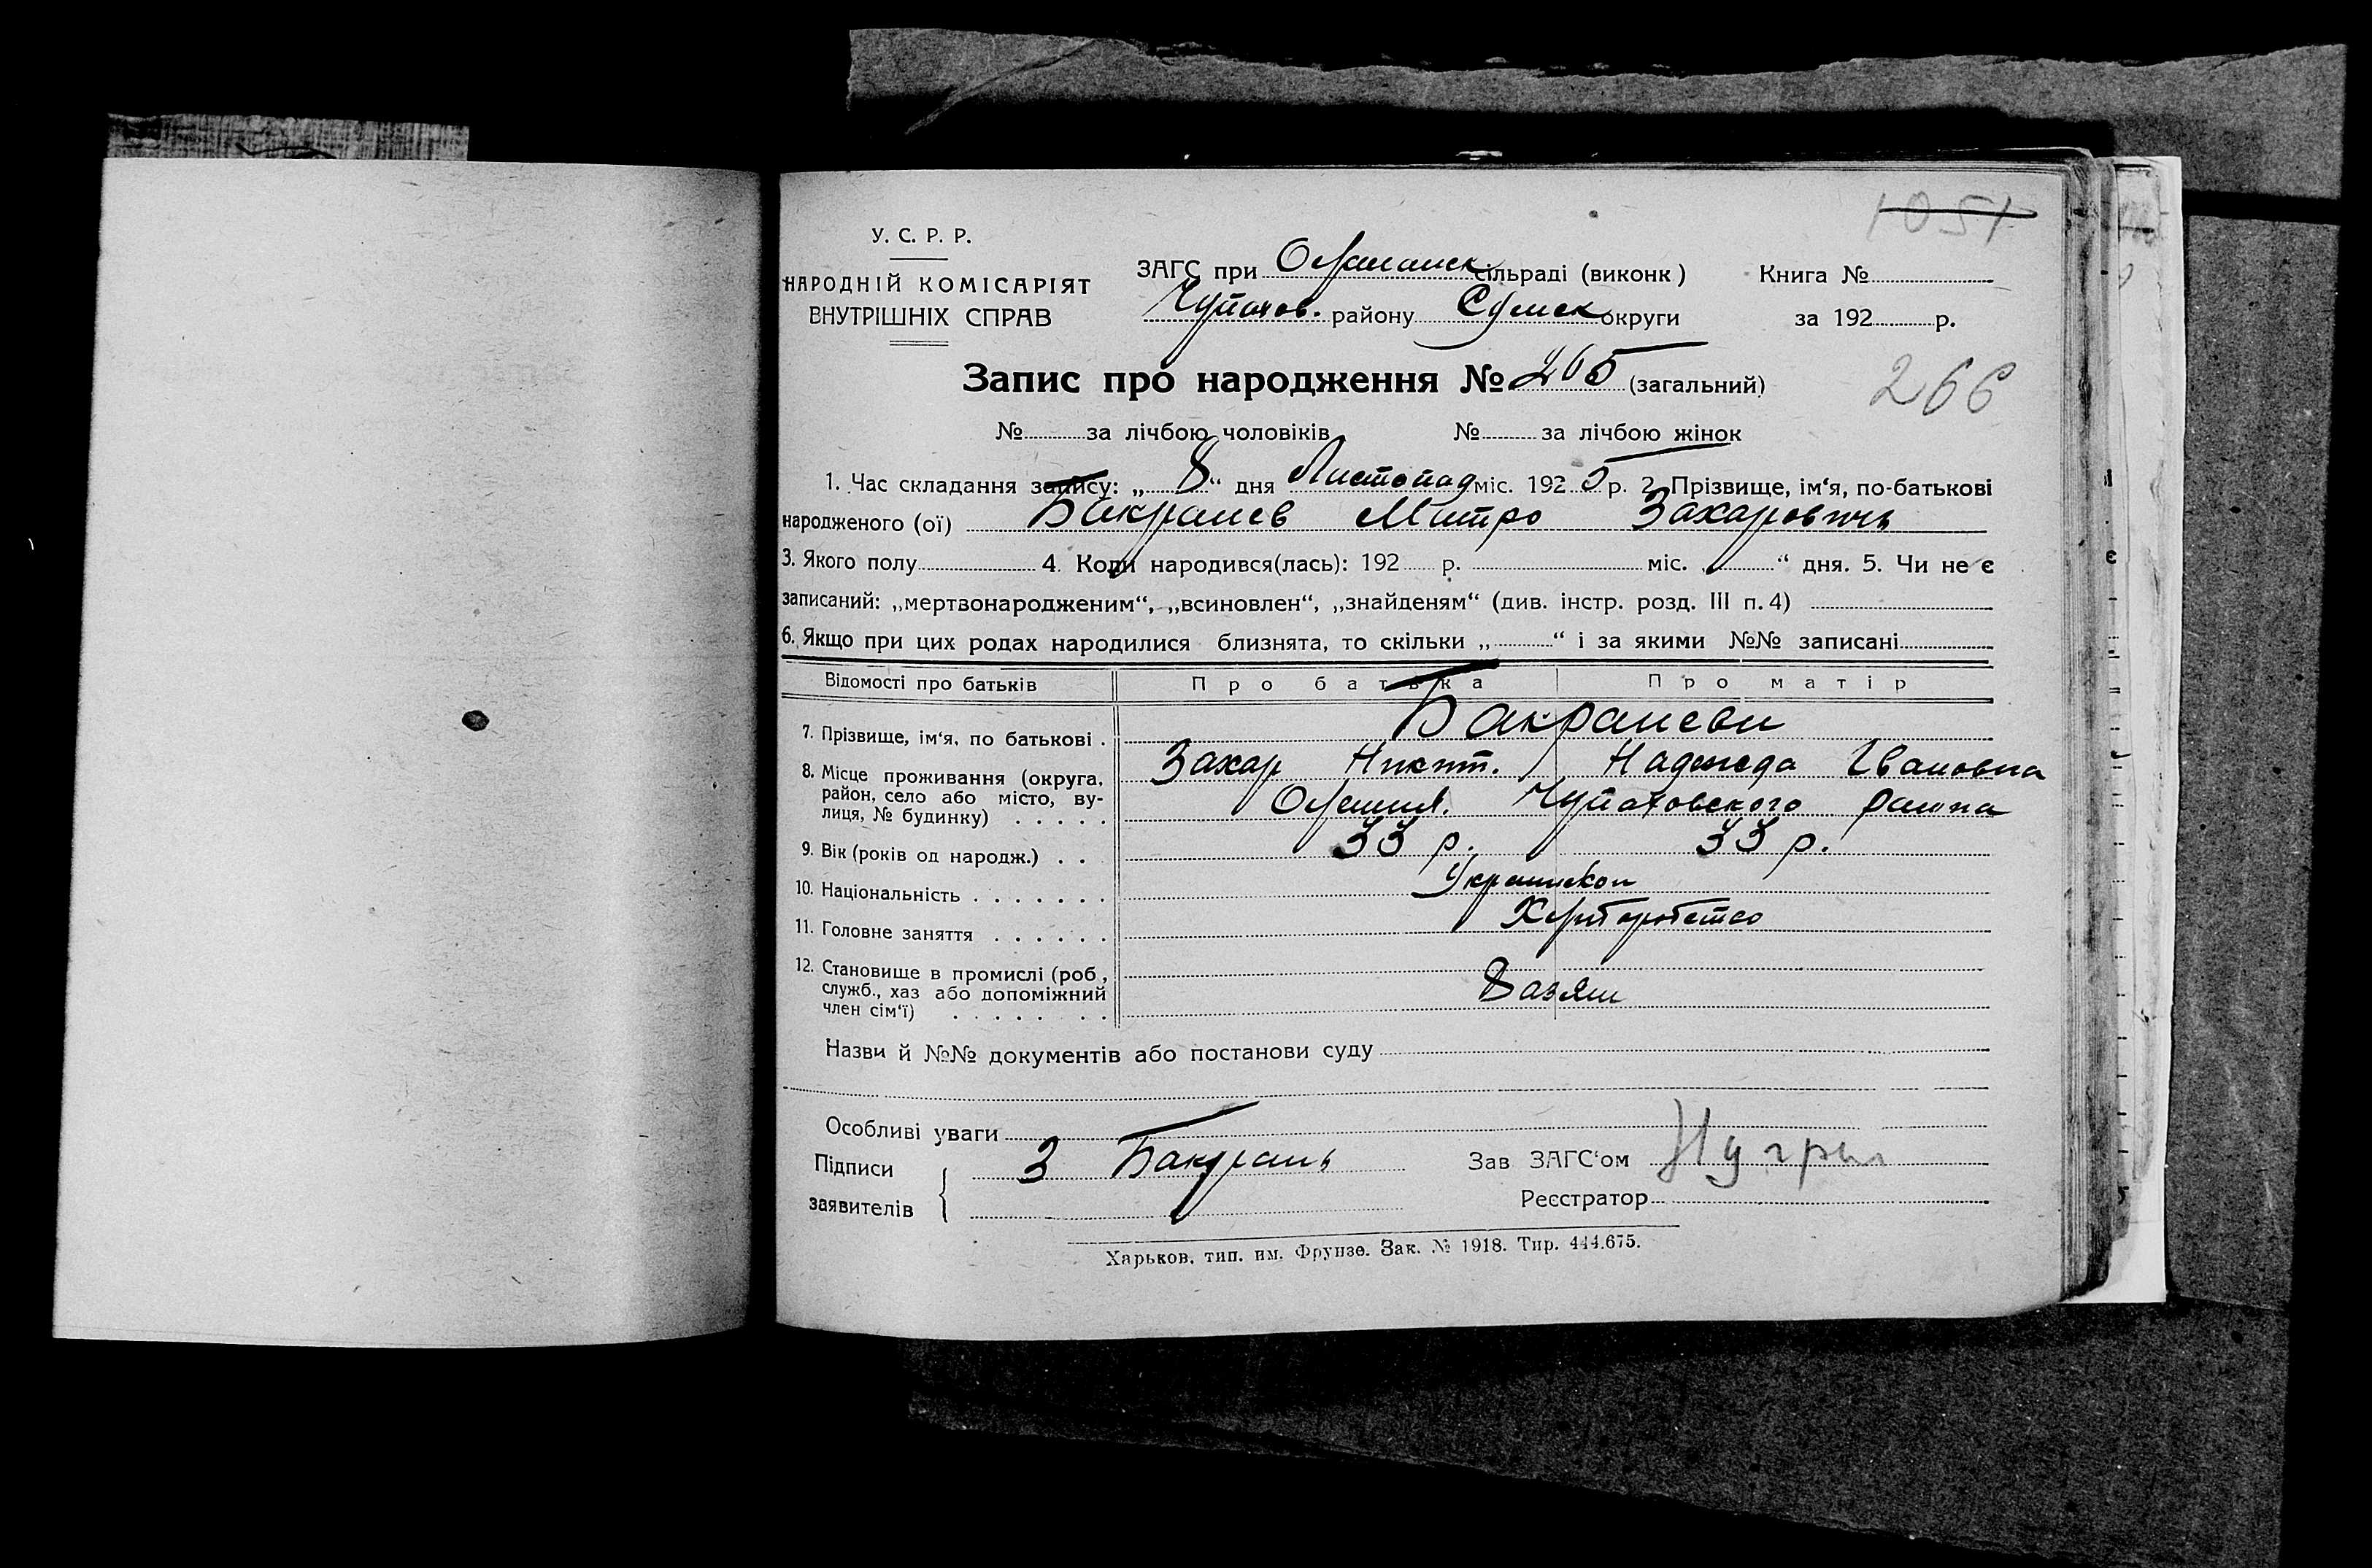 1051
У. С. Р. Р.
НАРОДНІЙ КОМІСАРІЯТ
ВНУТРІШНІХ СПРАВ
ЗАГС при сільраді (виконк) Книга №
Чупахов. району Сумск округи за 192 р.
Запис про народження № 265 (загальний)
266
№ за лічбою чоловіків № за лічбою жінок
1. Час складання запису: „ 8 “ дня Листопад міс. 192 5 р. 2. Прізвище, ім‘я, по-батькові
народженого (ої) Митро Захарович
3. Якого полу 4. Коли народився(лась): 192 р. міс. „ “ дня. 5. Чи не є
записаний: „мертвонародженим“, „всиновлен“, „знайденям“ (див. інстр. розд. III п. 4)
6. Якщо при цих родах народилися близнята, то скільки „ “ і за якими №№ записані
Відомості про батьків Про батька Про матір
7. Прізвище, ім‘я, по батькові .
Захар Никит. Надежда Івановна
8. Місце проживання (округа, район, село або місто, вулиця, № будинку) . . . . . Чупаховского
9. Вік (років од народж.) . . 33 р. 33 р.
10. Національність . . . . . . .
11. Головне заняття . . . . . .
12. Становище в промислі (роб., служб., хаз або допоміжний член сім‘ї) . . . . . . .
Назви й №№ документів або постанови суду
Особливі уваги
Підписи
заявителів
З
Зав ЗАГС‘ом
Реєстратор
Харьков, тип. им. Фрунзе. Зак. № 1918. Тир. 444.675.